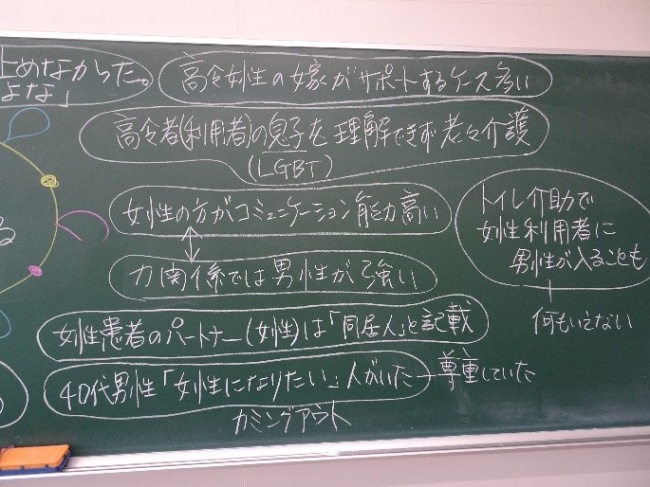 止めなかった。
よな」
高令女性の嫁がサポートするケース多い
高令者(利用者)の息子を理解できず老々介護
(LGBT)
女性の方がコミュニケーション能力高い
力関係では男性が強い
トイレ介助で
女性利用者に
男性が入ることも
何もいえない
る
女性患者のパートナー(女性)は「同居人」と記載
40代男性「女性になりたい」人がいた
尊重していた
カミングアウト